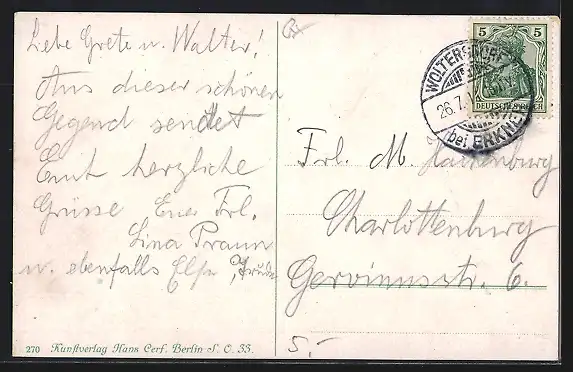 Liebe Grete u. Walter!
Aus dieser schönen
Gegend sendet
Euch herzliche
Grüsse Eure Frl.
Lina Braun
u. ebenfalls Else, Trude
5 5
DEUTSCHES REICH
WOLTERSDORF
26.7.1
(bei ERKNER)
Frl. M.
Charlottenburg
Gervinusstr. 6.
5.-
270 Kunstverlag Hans Cerf. Berlin S. O. 33.